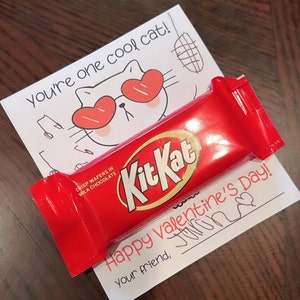 You're one cool cat!
CRISP WAFERS IN
MILK CHOCOLATE
KitKat
Happy Valentine's Day!
Your friend,